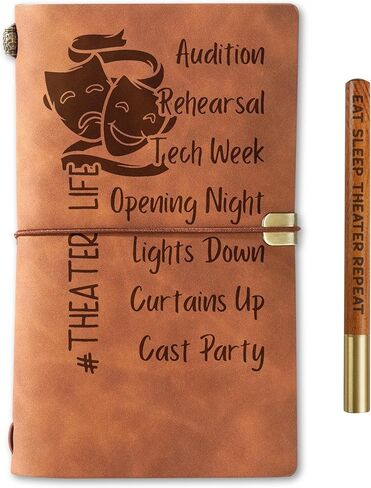 Audition
Rehearsal
Tech Week
Opening Night
Lights Down
Curtains Up
Cast Party
#THEATER LIFE
EAT SLEEP THEATER REPEAT